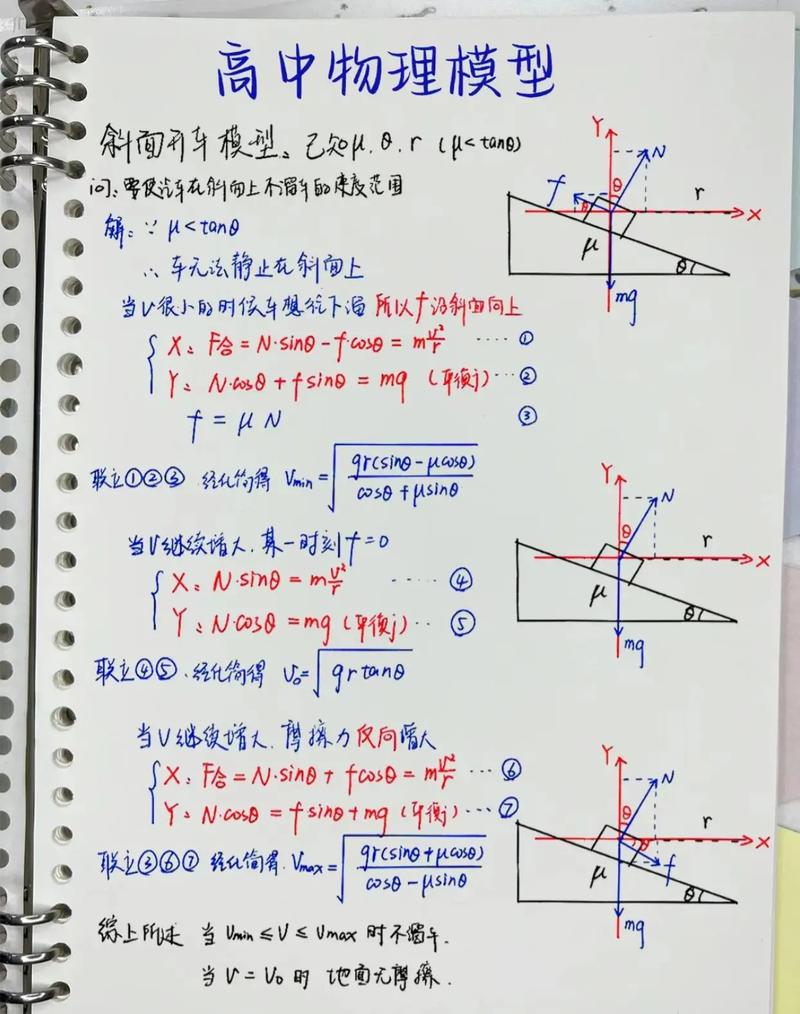 高中物理模型
斜面开车模型:已知μ.θ.r (μ<tanθ)
问:要使汽车在斜面上不溜车的速度范围
解:∵ μ<tanθ
∴ 车无法静止在斜面上
当V很小的时候车想往下溜 所以f沿斜面向上
X: F合=N·sinθ-f·cosθ=mv²/r ····①
Y: N·cosθ+fsinθ=mg (平衡)···②
f=μN ③
联立①②③.经化简得 Vmin=√(gr(sinθ-μcosθ)/(cosθ+μsinθ))
当V继续增大,某一时刻f=0
X: N·sinθ=mv²/r ·····④
Y: N·cosθ=mg (平衡)··⑤
联立④⑤.经化简得 V₀=√(grtanθ)
当V继续增大.摩擦力反向增大
X: F合=N·sinθ+fcosθ=mv²/r ···⑥
Y: N·cosθ=fsinθ+mg (平衡)···⑦
联立③⑥⑦经化简得.Vmax=√(gr(sinθ+μcosθ)/(cosθ-μsinθ))
综上所述 当Vmin≤V≤Vmax时不溜车.
当V=V₀时 地面无摩擦.
Y
N
f
θ
θ
r
X
μ
θ
mg
Y
N
θ
r
X
μ
θ
mg
Y
N
θ
r
θ
X
μ
f
θ
mg